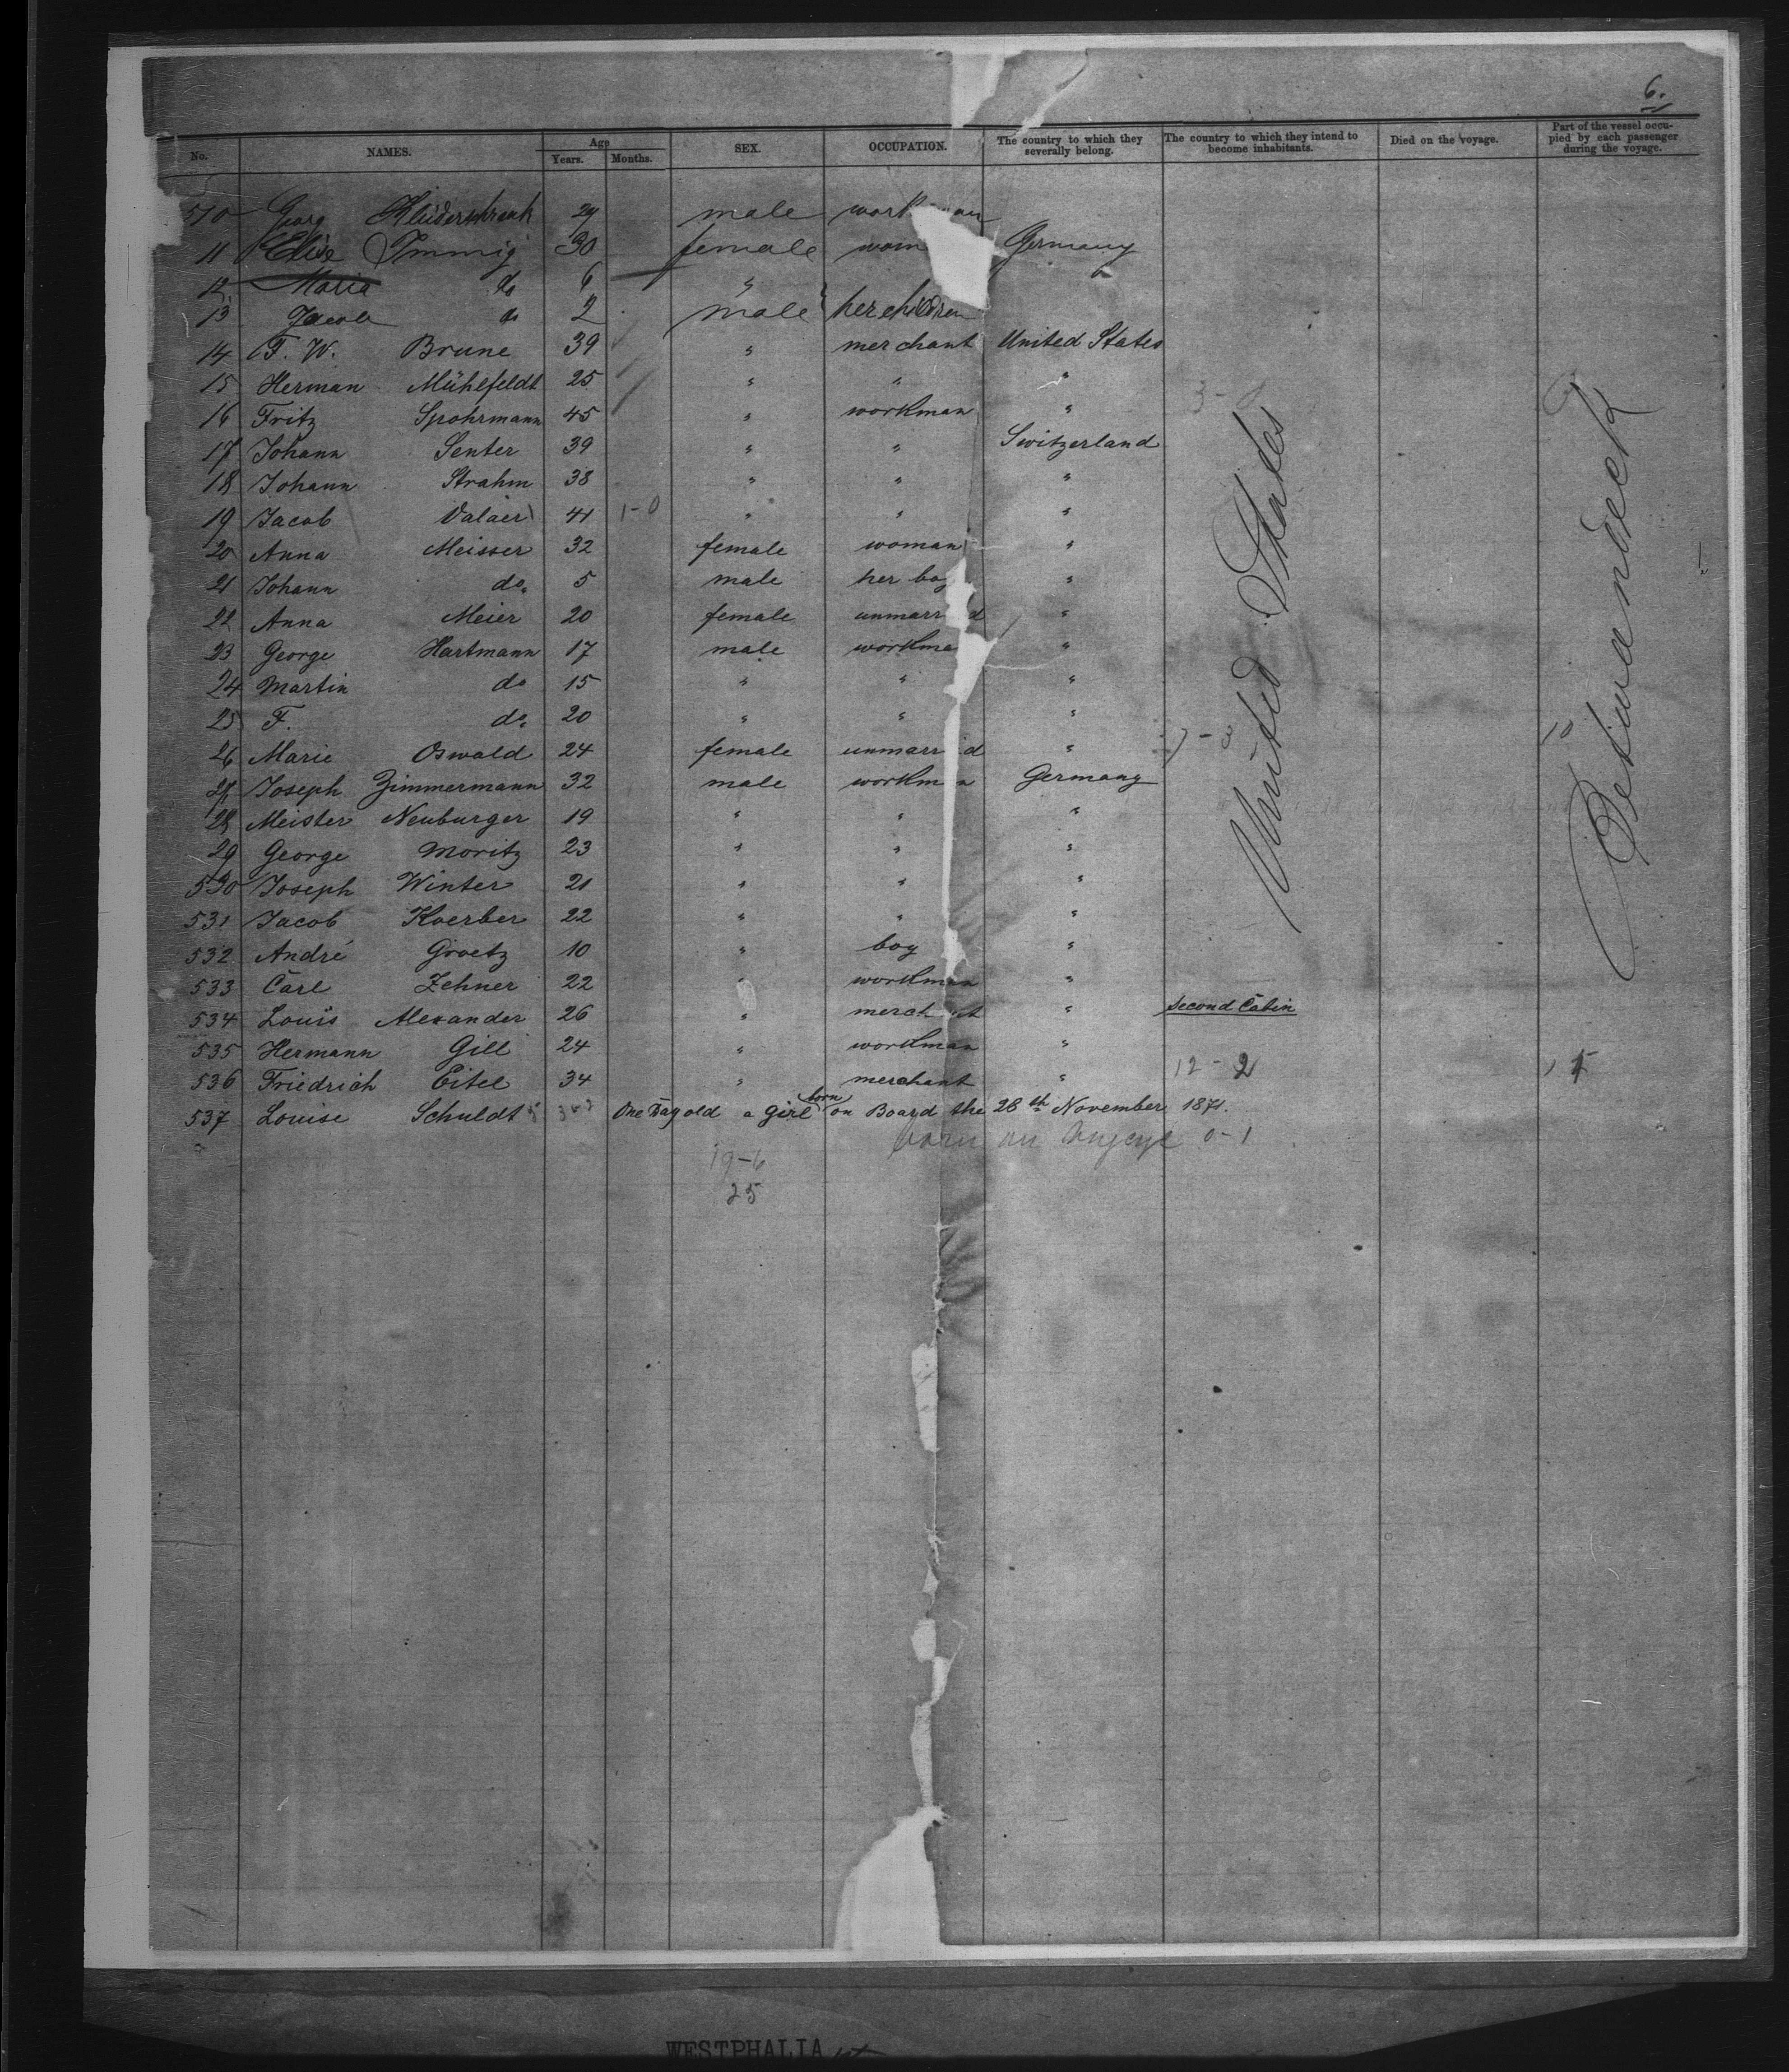 6.
No. NAMES. Age Years. Months. SEX. OCCUPATION. The country to which they severally belong. The country to which they intend to become inhabitants. Died on the voyage. Part of the vessel occupied by each passenger during the voyage.
510 Georg 29 male
11 Elise Immig 30 female wom Germany
12 Maria do 6 "
13 Jacob do 2 male her children
14 F. W. Brune 39 " merchant United States
15 Herman Mühlfeldt 25 " " "
16 Fritz Spohrmann 45 " workman "
17 Johann Senter 39 " " Switzerland
18 Johann Strahm 38 " " "
19 Jacob Valaer 41 1-0 " " "
20 Anna Meisser 32 female woman "
21 Johann do. 5 male her boy "
22 Anna Meier 20 female unmarr d "
23 George Hartmann 17 male workma "
24 Martin do 15 " " "
25 F. do. 20 " " "
26 Marie Oswald 24 female unmarr d "
27 Joseph Zimmermann 32 male workm n Germany
28 Meister Neuburger 19 " " "
29 George Moritz 23 " " "
530 Joseph Winter 21 " " "
531 Jacob Koerber 22 " " "
532 André Groetz 10 " boy "
533 Carl Zehner 22 " workman "
534 Louis Alexander 26 " merch nt " Second Cabin
535 Hermann Gill 24 " workman "
536 Friedrich Eitel 34 " merchant " 12-2
537 Louise Schuldt One Day old a Girl born on Board the 28th November 1871.
born on voyage 0-1
19-6
25
United States
Between deck
WESTPHALIA